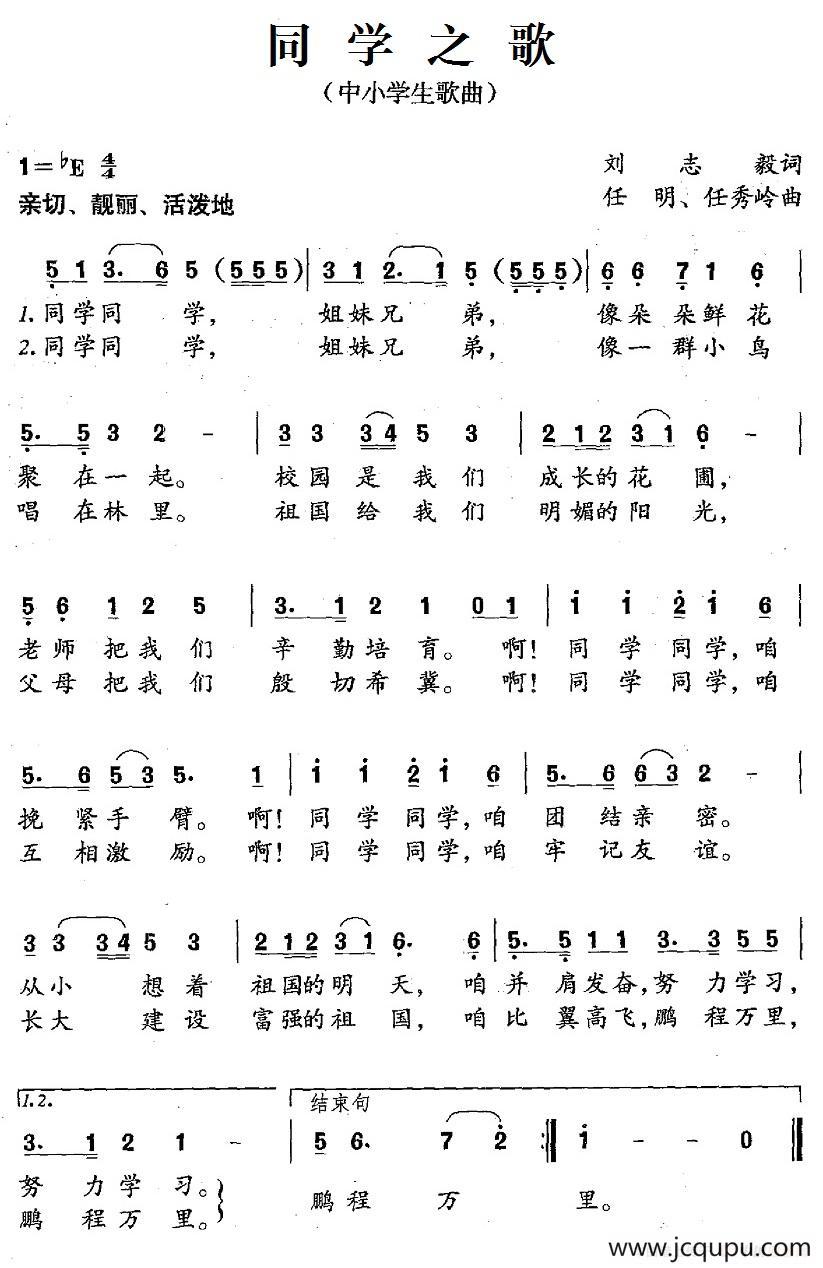 同学之歌
（中小学生歌曲）
1=♭E 4/4
刘志毅词
亲切、靓丽、活泼地
任明、任秀岭曲
5̣ 1 3. 6 5 (5 5 5) | 3 1 2. 1 5̣ (5̣ 5̣ 5̣) | 6̣ 6̣ 7̣ 1 6̣ |
1.同学同学，姐妹兄弟，像朵朵鲜花
2.同学同学，姐妹兄弟，像一群小鸟
5̣. 5̣ 3 2 - | 3 3 3 4 5 3 | 2 1 2 3 1 6̣ - |
聚在一起。校园是我们成长的花圃，
唱在林里。祖国给我们明媚的阳光，
5̣ 6̣ 1 2 5 | 3. 1 2 1 0 1 | i i 2̇ i 6 |
老师把我们辛勤培育。啊！同学同学，咱
父母把我们殷切希冀。啊！同学同学，咱
5. 6 5 3 5. 1 | i i 2̇ i 6 | 5. 6 6 3 2 - |
挽紧手臂。啊！同学同学，咱团结亲密。
互相激励。啊！同学同学，咱牢记友谊。
3 3 3 4 5 3 | 2 1 2 3 1 6̣. 6̣ | 5̣. 5̣ 1 1 3. 3 5 5 |
从小想着祖国的明天，咱并肩发奋，努力学习，
长大建设富强的祖国，咱比翼高飞，鹏程万里，
1.2. 结束句
3. 1 2 1 - | 5 6. 7 2̇ :‖ i - - 0 ‖
努力学习。
鹏程万里。 鹏程万里。
www.jcqupu.com